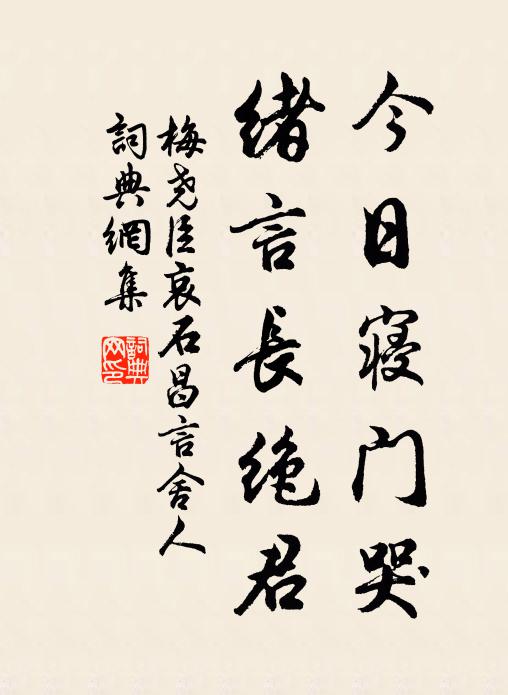 今日寝门哭
绪言長绝君
梅尧臣哀石昌言舍人
詞典網集
詞典
网印